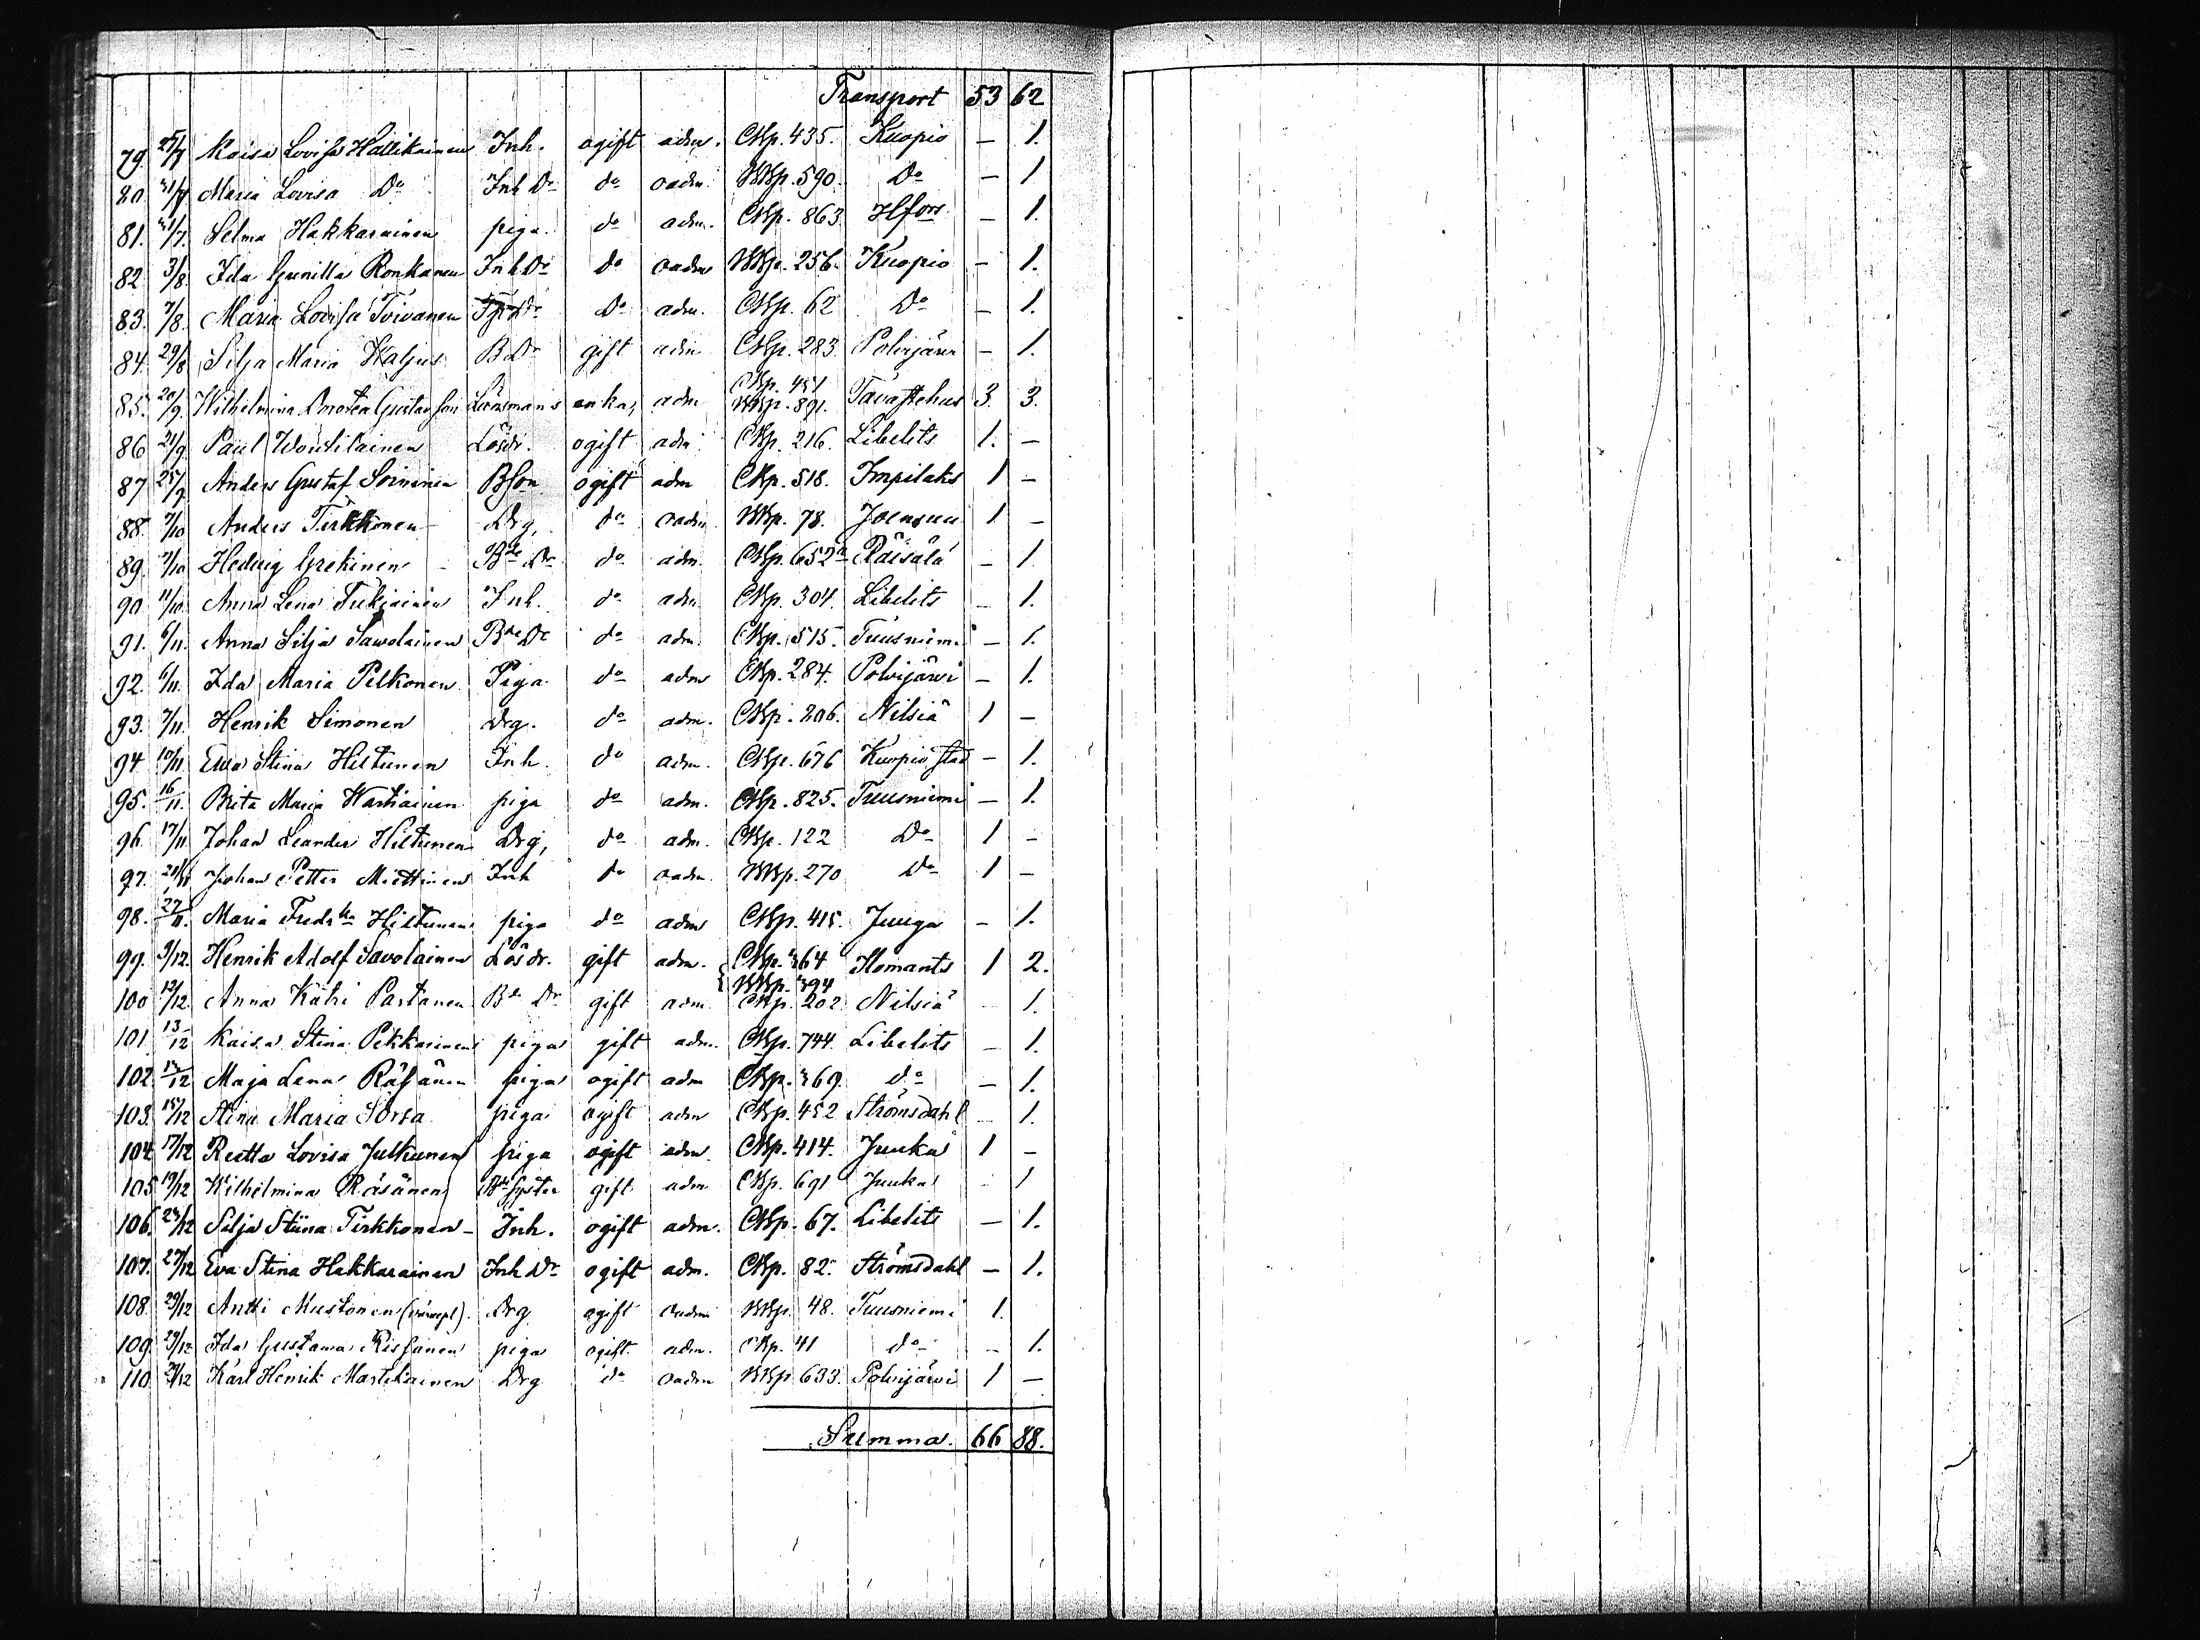 Transport 53 62
79. 25/7 Kaisa Lovisa Hallikainen Inh. ogift adm. CKp. 435. Kuopio — 1.
80. 31/7 Maria Lovisa Do Inh Dr do oadm. WKp. 590. Do — 1
81. 31/7. Selma Hakkarainen piga. do adm. CKp. 863 Hfors — 1.
82 3/8 Ida Gunilla Ronkanen Inh Dr do oadm WKp. 256. Kuopio — 1.
83. 7/8. Maria Lovisa Toivanen Do adm. CKp. 62 Do — 1.
84. 29/8 Silja Maria Kaljus BDr gift adm CKp. 283. Polvijärvi — 1.
85. 20/9. Wilhelmina Dorotea Gustafson Länsmans enka, adm CKp. 451 WKp. 891. Tavastehus 3. 3.
86 21/9 Paul Woutilainen Lösdr. ogift adm CKp. 216. Libelits 1. —
87 25/9 Anders Gustaf Soininen BSon ogift adm CKp. 518. Impilaks 1 —
88. 7/10 Anders Tirkkonen Drg, do oadm. WKp. 78. Joensuu 1 —
89. 7/10 Hedvig Grekinen Bde Dr do adm. CKp. 652 Räisälä — 1
90 11/10. Anna Lena Tukiainen Inh. do adm CKp. 304. Libelits — 1.
91. 6/11. Anna Silja Sawolainen Bde Dr do adm. CKp. 515. Tuusniemi — 1.
92. 6/11. Ida Maria Pelkonen Piga do adm CKp. 284. Polvijärvi — 1.
93. 7/11. Henrik Simonen Drg. do adm. CKp. 206. Nilsiä 1 —
94 10/11 Ewa Stina Hiltunen Inh. do adm. CKp. 676 Kuopio stad — 1.
95. 16/11. Brita Maria Wartiainen piga do adm. CKp. 825. Tuusniemi — 1.
96. 17/11 Johan Leander Hiltunen Drg, do adm. CKp. 122 Do 1 —
97. 21/11 Johan Petter Miettinen Inh do oadm. WKp. 270 Do 1 —
98. 27/11. Maria Fredrka Hiltunen piga do adm CKp. 415. Juuga — 1.
99. 9/12. Henrik Adolf Savolainen Lösdr. gift adm. CKp. 364 WKp. 394 Ilomants 1 2.
100 12/12. Anna Katri Partanen Bde Dr gift adm CKp. 202 Nilsiä — 1.
101. 13/12 Kaisa Stina Pekkarinen piga gift adm. CKp. 744. Libelits — 1.
102. 15/12 Maja Lena Räsänen piga ogift adm CKp. 369. do — 1.
103. 15/12 Stina Maria Sorsa piga ogift adm CKp. 452 Strömsdahl — 1.
104. 17/12 Reetta Lovisa Julkunen piga ogift adm CKp. 414. Juuka 1 —
105 19/12 Wilhelmina Räsänen Bde syster gift adm CKp. 691 Juuka — 1
106. 24/12 Silja Stiina Tirkkonen — Inh. ogift adm. CKp. 67. Libelits — 1.
107. 27/12 Eva Stina Hakkarainen Inh Dr ogift adm. CKp. 82. Strömsdahl — 1.
108. 29/12 Antti Mustonen Drg ogift oadm WKp. 48. Tuusniemi 1.
109. 29/12 Ida Gustava Rissanen piga ogift adm. CKp. 41 do — 1.
110. 29/12 Karl Henrik Martikainen Drg do oadm WKp 633. Polvijärvi 1 —
Summa. 66 88.